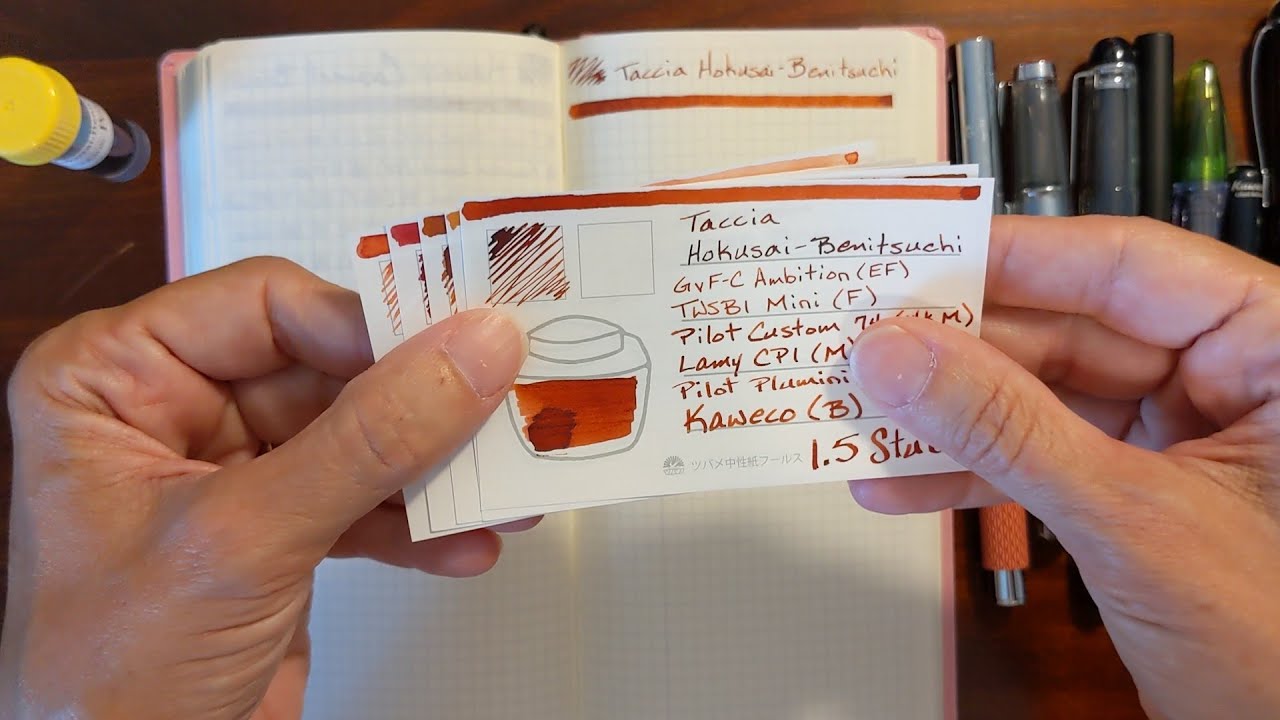 Taccia Hokusai-Benitsuchi
Taccia
Hokusai-Benitsuchi
GvF-C Ambition (EF)
TWSBI Mini (F)
Pilot Custom 74 M)
Lamy CP1 (M)
Pilot Plumini
Kaweco (B)
ツバメ中性紙フールス
1.5